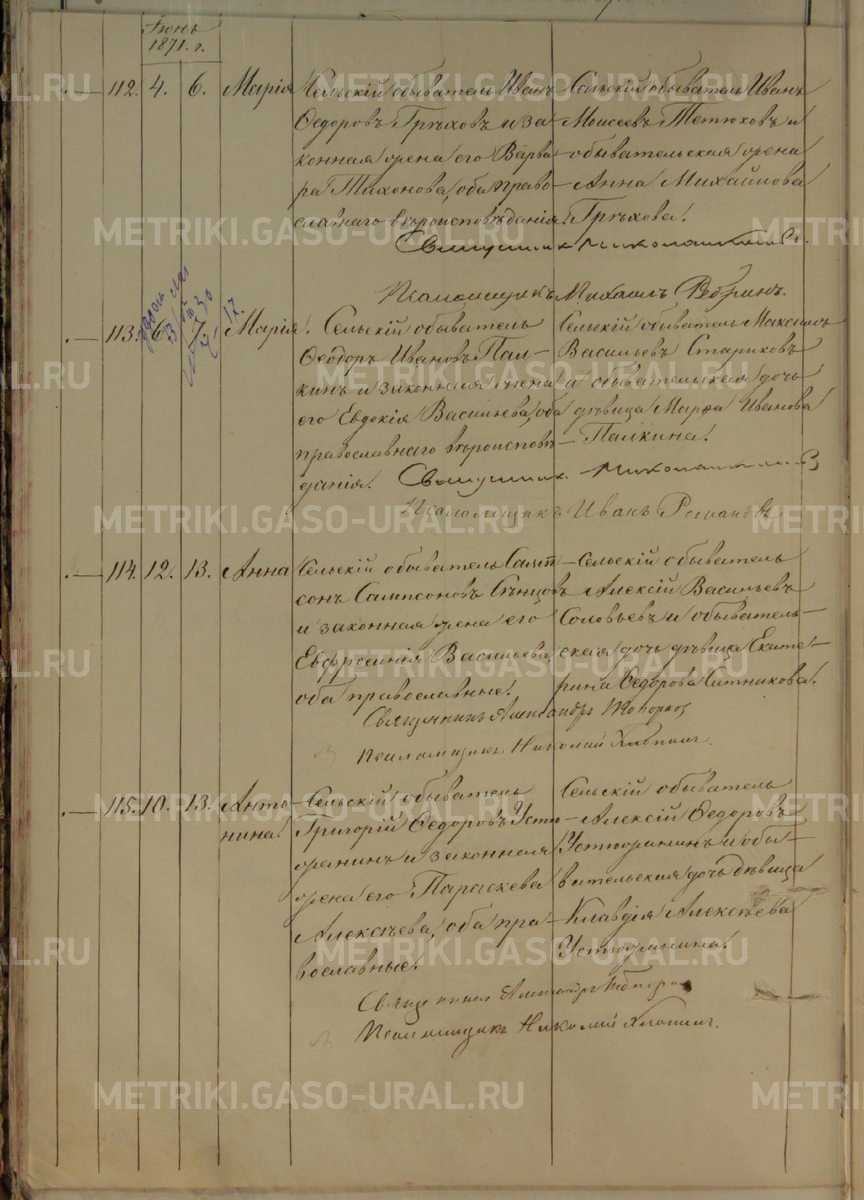 Іюнь
1871. г.
112. 4. 6. Марія Сельскій обыватель Иванъ
Ѳедоровъ Грѣховъ и за-
конная жена его Варва-
ра Тихонова, оба право-
славнаго вѣроисповѣданія.
Сельскій обыватель Иванъ
Моисеевъ Тетюковъ и
обывательская жена
Анна Михайлова
Грѣхова.
Священникъ
Псаломщикъ Михаилъ
113. 6. 7. Марія. Сельскій обыватель
Ѳеодоръ Ивановъ Пал-
кинъ и законная жена
его Евдокія Васильева, оба
православнаго вѣроисповѣ-
данія.
Сельскій обыватель Максимъ
Васильевъ Стариковъ
и обывательская дочь
дѣвица Марѳа Иванова
Палкина.
Священникъ
Псаломщикъ Иванъ Романовъ
114. 12. 13. Анна Сельскій обыватель Самп-
сонъ Сампсоновъ Сѣнцовъ
и законная жена его
Евфросинія Васильева,
оба православные.
Сельскій обыватель
Алексій Васильевъ
Соловьевъ и обыватель-
ская дочь дѣвица Екате-
рина Ѳедорова Ситникова.
Священникъ Александръ
Псаломщикъ Николай
115. 10. 13. Анто-
нина. Сельскій обыватель
Григорій Ѳедоровъ Устю-
жанинъ и законная
жена его Параскева
Алексѣева, оба пра-
вославные.
Сельскій обыватель
Алексій Ѳедоровъ
Устюжанинъ и обы-
вательская дочь дѣвица
Клавдія Алексѣева
Устюжанина.
Священникъ Александръ
Псаломщикъ Николай
METRIKI.GASO-URAL.RU